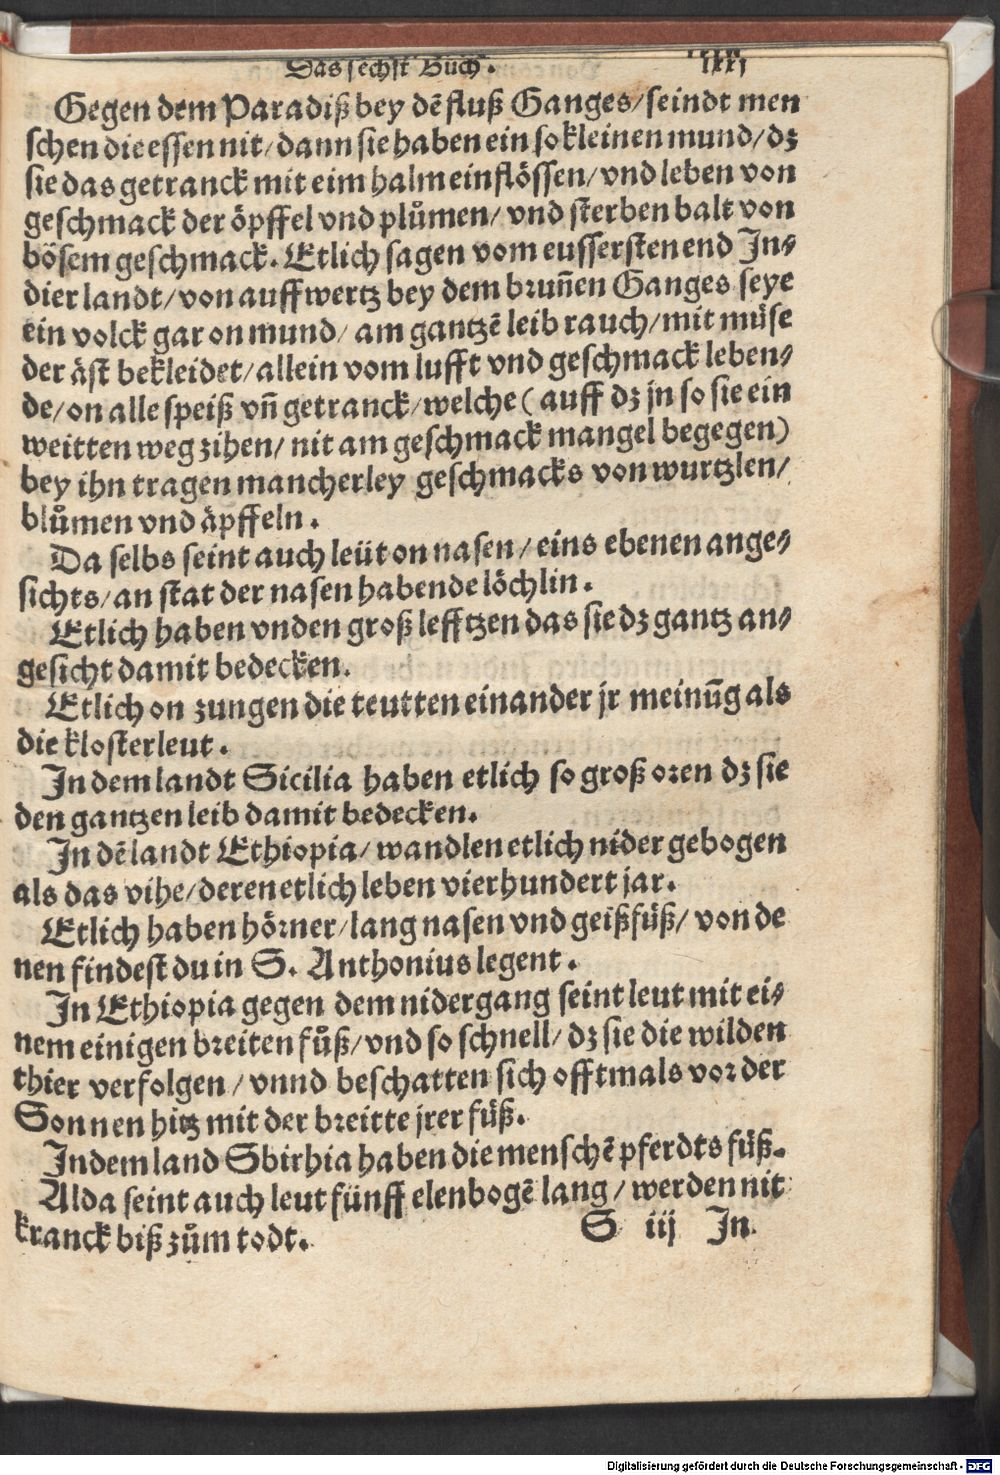 Das sechst Buch.
Gegen dem Paradiß bey dē fluß Ganges/seindt men
schen die essen nit/dann sie haben ein so kleinen mund/dz
sie das getranck mit eim halm einflössen/vnd leben von
geschmack der öpffel vnd plůmen/vnd sterben balt von
bösem geschmack. Etlich sagen vom eussersten end In⸗
dier landt/von auffwertz bey dem brun̄en Ganges seye
ein volck gar on mund/am gantzē leib rauch/mit müse
der äst bekleidet/allein vom lufft vnd geschmack leben⸗
de/on alle speiß vn̄ getranck/welche (auff dz jn so sie ein
weitten weg zihen/nit am geschmack mangel begegen)
bey ihn tragen mancherley geschmacks von wurtzlen/
blůmen vnd äpffeln.
Da selbs seint auch leüt on nasen/eins ebenen ange⸗
sichts/an stat der nasen habende löchlin.
Etlich haben vnden groß lefftzen das sie dz gantz an⸗
gesicht damit bedecken.
Etlich on zungen die teutten einander jr meinūg als
die klosterleut.
In dem landt Sicilia haben etlich so groß oren dz sie
den gantzen leib damit bedecken.
In dē landt Ethiopia/wandlen etlich nider gebogen
als das vihe/deren etlich leben vierhundert jar.
Etlich haben hörner/lang nasen vnd geißfüß/von de
nen findest du in S. Anthonius legent.
In Ethiopia gegen dem nidergang seint leut mit ei⸗
nem einigen breiten fůß/vnd so schnell/dz sie die wilden
thier verfolgen/vnnd beschatten sich offtmals vor der
Sonnen hitz mit der breitte jrer füß.
In dem land Sbirhia haben die menschē pferdts füß.
Alda seint auch leut fünff elenbogē lang/werden nit
kranck biß zům todt.
S iij In
Digitalisierung gefördert durch die Deutsche Forschungsgemeinschaft - DFG